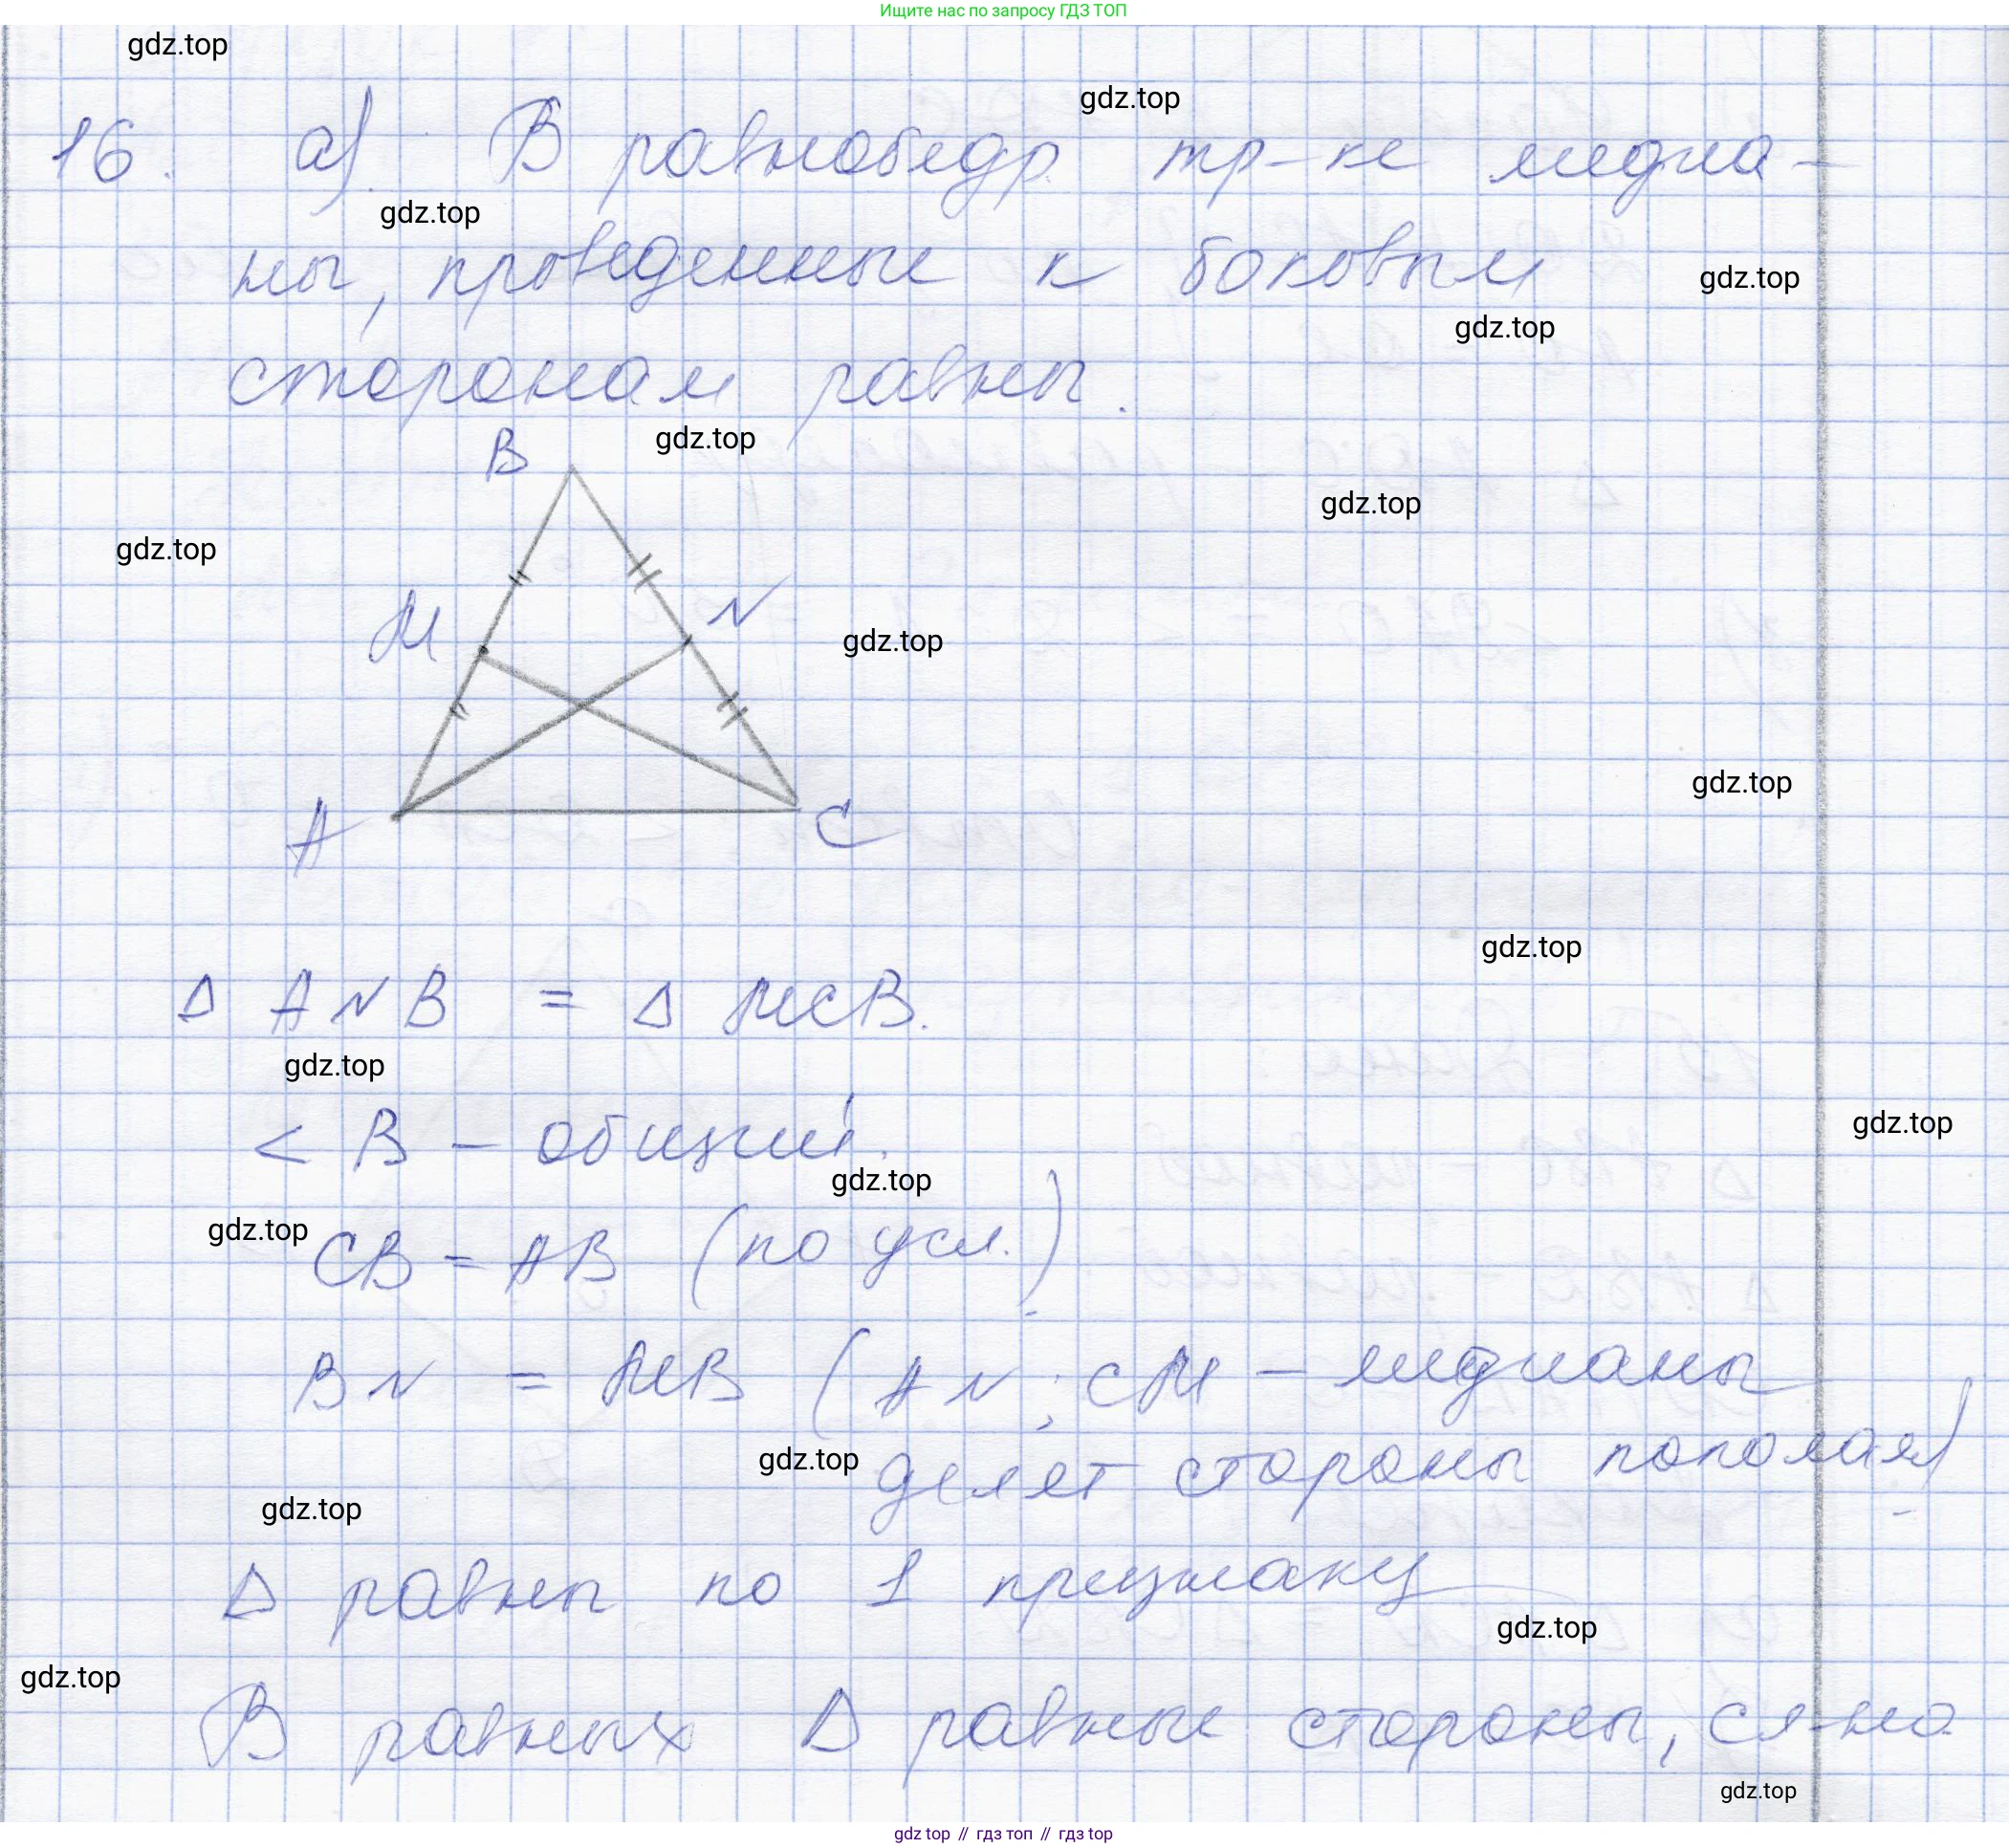 Ищите нас по запросу ГДЗ ТОП
gdz.top
gdz.top
16. а). В равнобедр. тр-ке медиа-
gdz.top
ны, проведенные к боковым
gdz.top
gdz.top
сторонам равны.
B
gdz.top
gdz.top
gdz.top
M
N
gdz.top
gdz.top
A
C
gdz.top
Δ ANB = Δ MCB.
gdz.top
gdz.top
< B - общий.
gdz.top
gdz.top
CB = AB (по усл.)
BN = MB (AN; CM - медианы
gdz.top
делят стороны пополам)
gdz.top
Δ равны по 1 признаку
gdz.top
gdz.top
В равных Δ равные стороны, сл-но
gdz.top
gdz top // гдз топ // гдз top